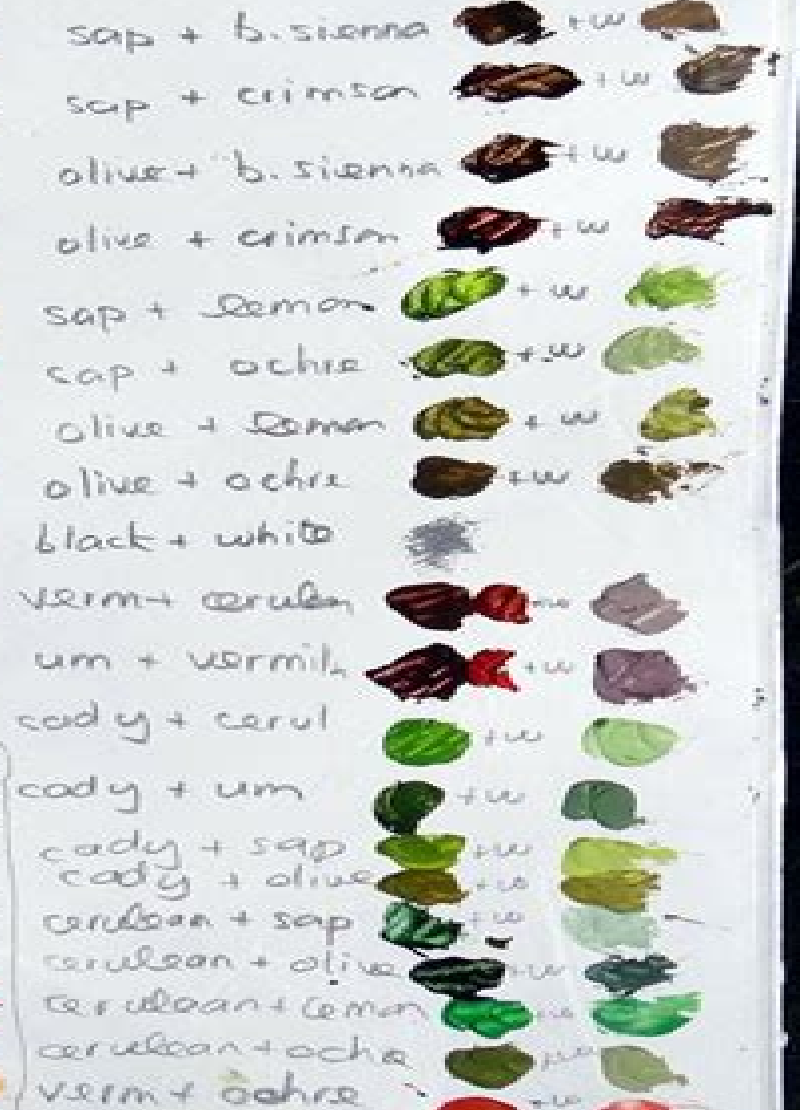 sap + b.sienna +w
sap + crimson +w
olive + b.sienna +w
olive + crimson +w
sap + lemon +w
sap + ochre +w
olive + lemon +w
olive + ochre +w
black + white
verm + cerulean
um + vermil. +w
cad y + cerul +w
cad y + um +w
cad y + sap +w
cad y + olive +w
cerulean + sap +w
cerulean + olive +w
cerulean + lemon +w
cerulean + ochre +w
verm + ochre +w